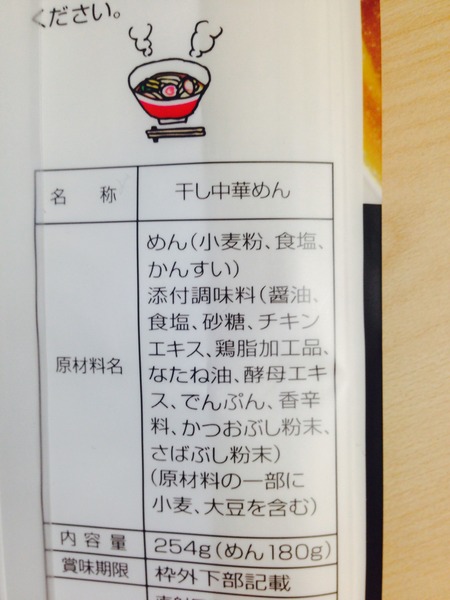 ください。
名称
干し中華めん
原材料名
めん(小麦粉、食塩、
かんすい)
添付調味料(醤油、
食塩、砂糖、チキン
エキス、鶏脂加工品、
なたね油、酵母エキ
ス、でんぷん、香辛
料、かつおぶし粉末、
さばぶし粉末)
(原材料の一部に
小麦、大豆を含む)
内容量
254g(めん180g)
賞味期限
枠外下部記載